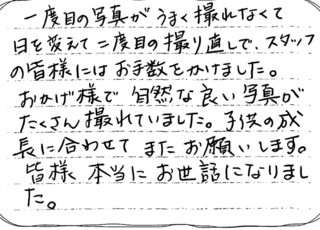 一度目の写真がうまく撮れなくて
日を変えて二度目の撮り直しで、スタッフ
の皆様にはお手数をかけました。
おかげ様で自然な良い写真が
たくさん撮れていました。子供の成
長に合わせてまたお願いします。
皆様本当にお世話になりまし
た。